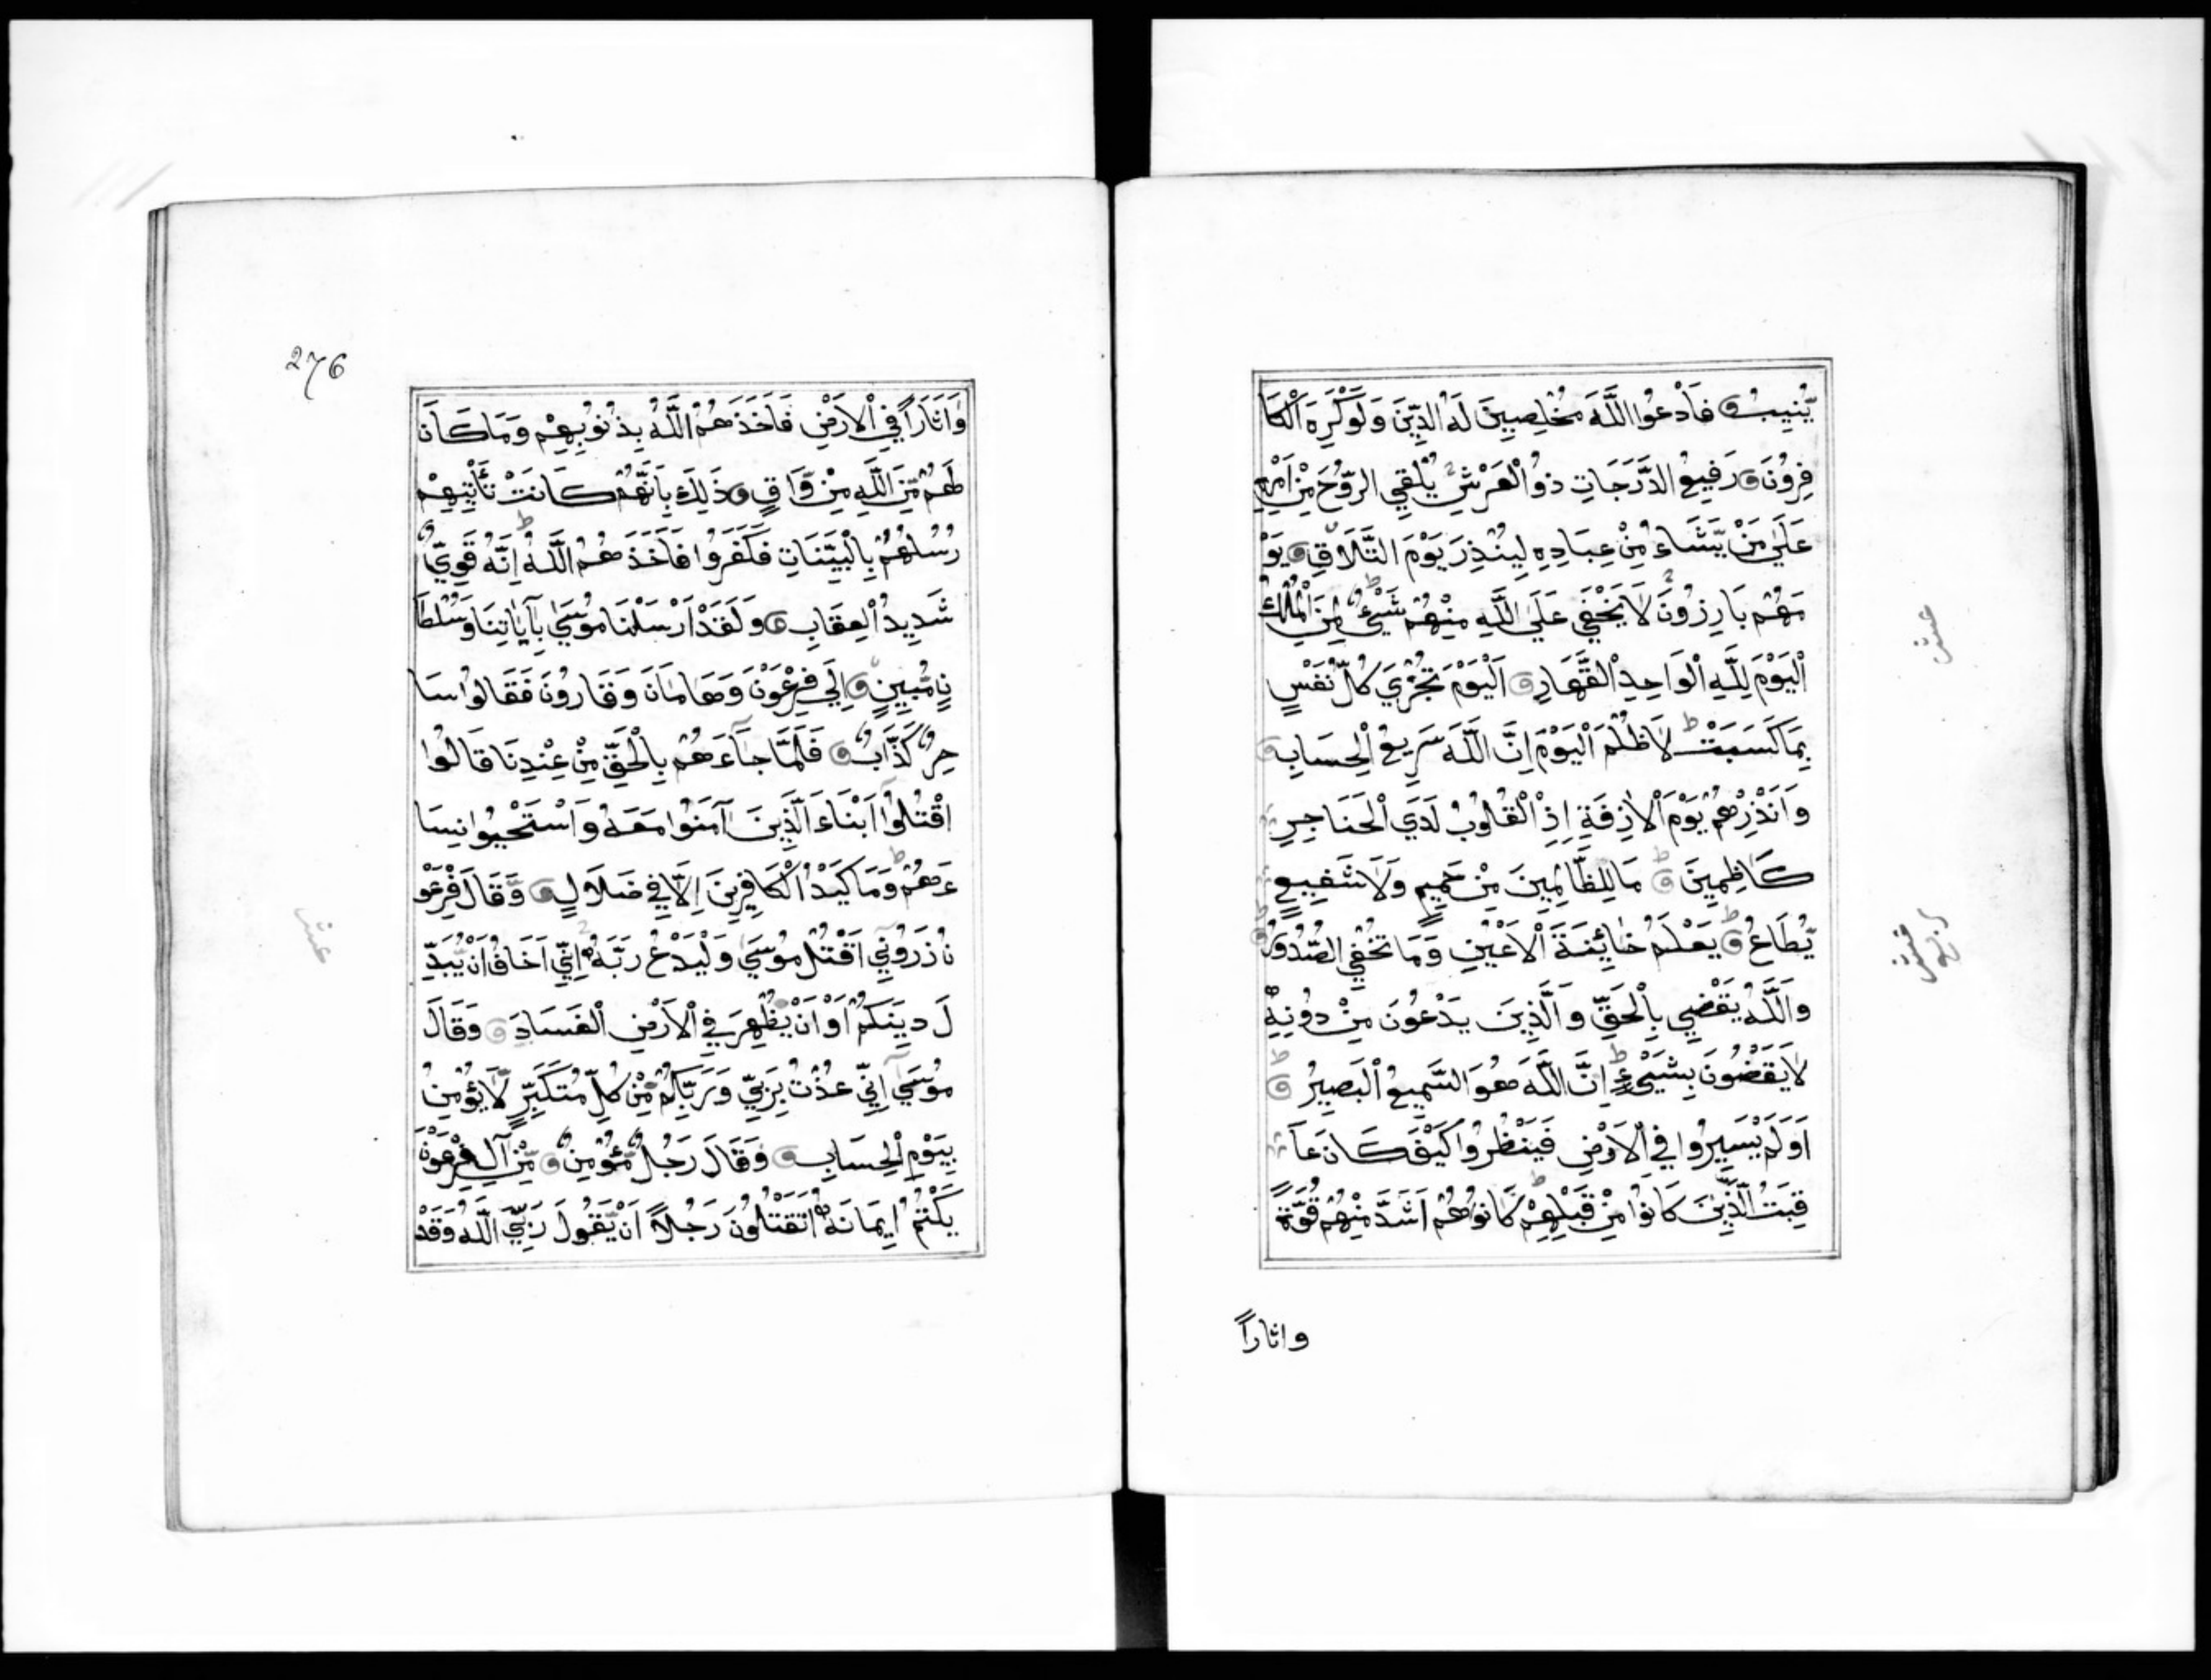 يُّنِيبُ فَادْعُوا اللَّهَ مُخْلِصِينَ لَهُ الدِّينَ وَلَوْ كَرِهَ الْكَا
فِرُونَ رَفِيعُ الدَّرَجَاتِ ذُوالْعَرْشِ يُلْقِي الرُّوحَ مِنْ اَمْرِهِ
عَلَى مَنْ يَّشَاءُ مِنْ عِبَادِهِ لِيُنْذِرَ يَوْمَ التَّلَاقِ يَوْ
مَهُمْ بَارِزُونَ لَا يَخْفَى عَلَى اللَّهِ مِنْهُمْ شَيْئٌ لِمَنِ الْمُلْكُ
الْيَوْمَ لِلَّهِ الْوَاحِدِ الْقَهَّارِ اَلْيَوْمَ تُجْزَي كُلُّ نَفْسٍ
بِمَا كَسَبَتْ لَا ظُلْمَ الْيَوْمَ اِنَّ اللَّهَ سَرِيعُ الْحِسَابِ
وَاَنْذِرْهُمْ يَوْمَ الْاٰزِفَةِ اِذِ الْقُلُوبُ لَدَي الْحَنَاجِرِ
كَاظِمِينَ مَا لِلظَّالِمِينَ مِنْ حَمِيمٍ وَلَا شَفِيعٍ
يُّطَاعُ يَعْلَمُ خَائِنَةَ الْاَعْيُنِ وَمَا تُخْفِي الصُّدُورُ
وَاللَّهُ يَقْضِي بِالْحَقِّ وَالَّذِينَ يَدْعُونَ مِنْ دُونِهِ
لَا يَقْضُونَ بِشَيْئٍ اِنَّ اللَّهَ هُوَ السَّمِيعُ الْبَصِيرُ
اَوَلَمْ يَسِيرُوا فِي الْاَرْضِ فَيَنْظُرُوا كَيْفَ كَانَ عَا
قِبَتُ الَّذِينَ كَانُوا مِنْ قَبْلِهِمْ كَانُوا هُمْ اَشَدَّ مِنْهُمْ قُوَّةً
واثاراً
عشر
ربع
عشر
276
وَاٰثَارًا فِي الْاَرْضِ فَاَخَذَهُمُ اللَّهُ بِذُنُوبِهِمْ وَمَا كَانَ
لَهُمْ مِّنَ اللَّهِ مِنْ وَّاقٍ ذَلِكَ بِاَنَّهُمْ كَانَتْ تَأْتِيهِمْ
رُسُلُهُمْ بِالْبَيِّنَاتِ فَكَفَرُوا فَاَخَذَهُمُ اللَّهُ اِنَّهُ قَوِيٌّ
شَدِيدُ الْعِقَابِ وَلَقَدْ اَرْسَلْنَا مُوسَي بِآيَاتِنَا وَسُلْطَا
نٍ مُّبِينٍ اِلَي فِرْعَوْنَ وَهَامَانَ وَقَارُونَ فَقَالُوا سَا
حِرٌ كَذَّابٌ فَلَمَّا جَآءَهُمْ بِالْحَقِّ مِنْ عِنْدِنَا قَالُوا
اقْتُلُوْا اَبْنَاءَ الَّذِينَ آمَنُوا مَعَهُ وَاسْتَحْيُوا نِسَا
ءَهُمْ وَمَا كَيْدُ الْكَافِرِينَ اِلَّا فِي ضَلَالٍ وَقَالَ فِرْعَوْ
نُ ذَرُونِي اَقْتُلْ مُوسَي وَلْيَدْعُ رَبَّهُ اِنِّي اَخَافُ اَنْ يُّبَدِّ
لَ دِينَكُمْ اَوْ اَنْ يُّظْهِرَ فِي الْاَرْضِ الْفَسَادَ وَقَالَ
مُوسَي اِنِّي عُذْتُ بِرَبِّي وَرَبِّكُمْ مِّنْ كُلِّ مُتَكَبِّرٍ لَّا يُؤْمِنُ
بِيَوْمِ الْحِسَابِ وَقَالَ رَجُلٌ مُّؤْمِنٌ مِّنْ آلِ فِرْعَوْنَ
يَكْتُمُ اِيمَانَهُ اَتَقْتُلُونَ رَجُلًا اَنْ يَّقُولَ رَبِّيَ اللَّهُ وَقَدْ
عشر